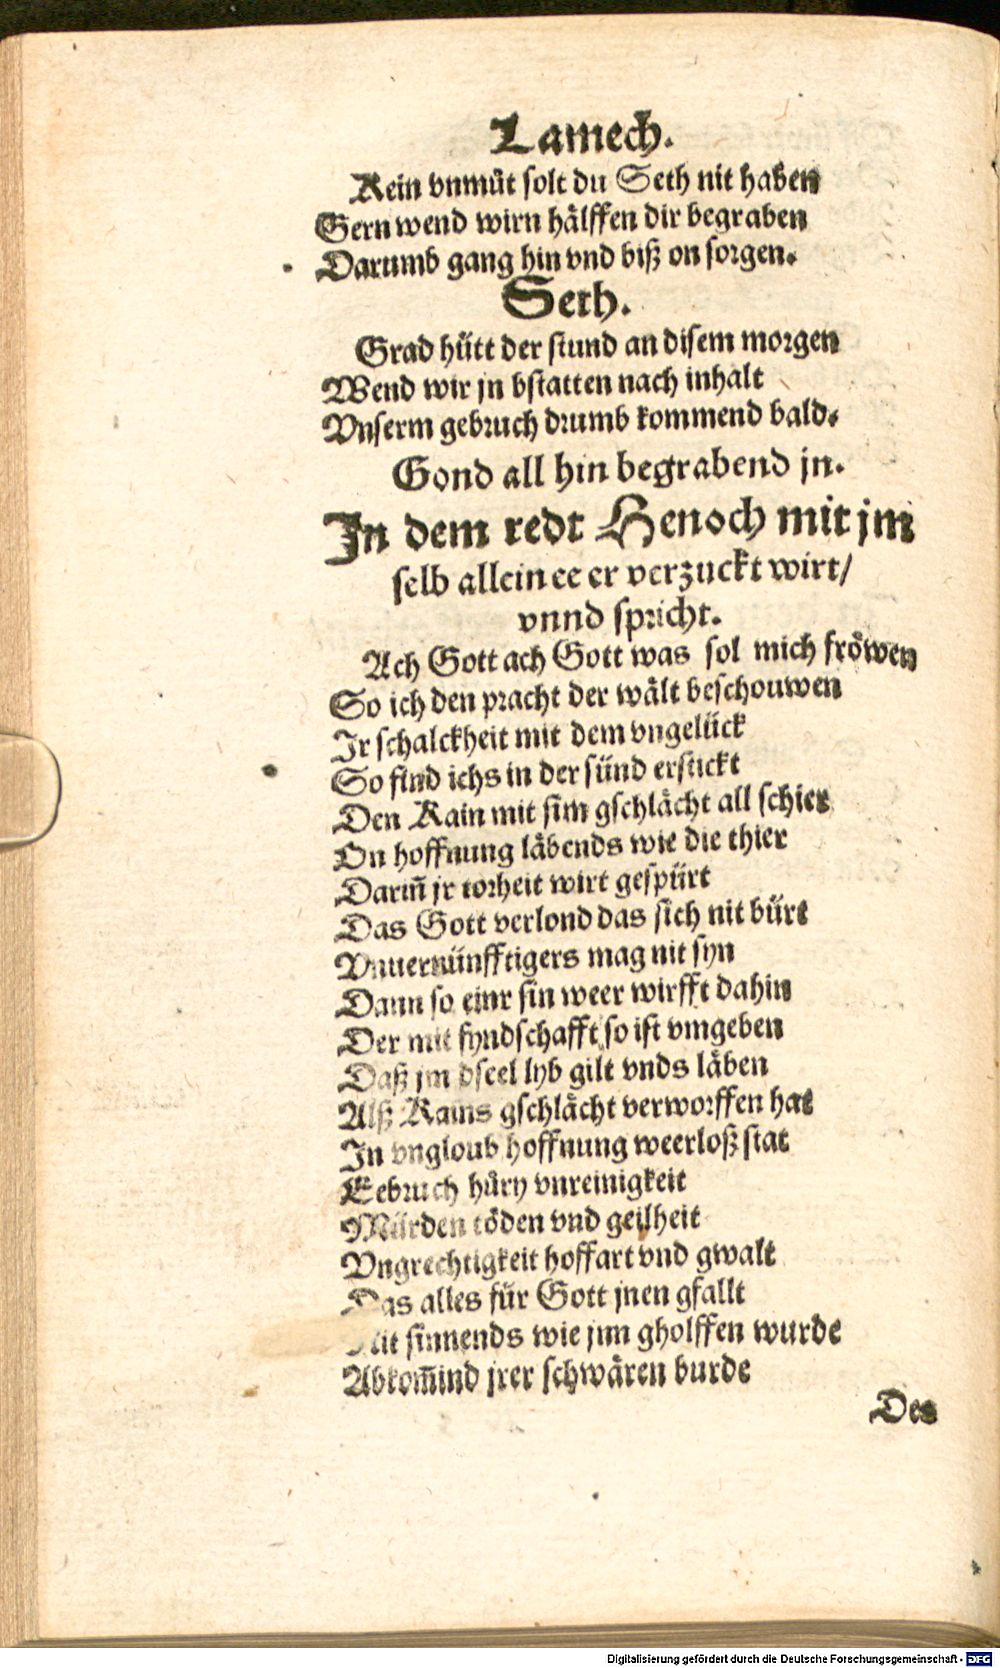 Lamech.
Kein vnmůt solt du Seth nit haben
Gern wend wirn hälffen dir begraben
Darumb gang hin vnd biß on sorgen.
Seth.
Grad hütt der stund an disem morgen
Wend wir jn bstatten nach inhalt
Vnserm gebruch drumb kommend bald.
Gond all hin begrabend jn.
In dem redt Henoch mit jm
selb allein ee er verzuckt wirt/
vnnd spricht.
Ach Gott ach Gott was sol mich fröwen
So ich den pracht der wält beschouwen
Ir schalckheit mit dem vngelück
So find ichs in der sünd erstickt
Den Kain mit sim gschlächt all schier
On hoffnung läbends wie die thier
Dariñ jr torheit wirt gespürt
Das Gott verlond das sich nit bürt
Vnuernünfftigers mag nit syn
Dann so einr sin weer wirfft dahin
Der mit fyndschafft so ist vmgeben
Daß jm dseel lyb gilt vnds läben
Alß Kains gschlächt verworffen hat
In vngloub hoffnung weerloß stat
Eebruch hůry vnreinigkeit
Mürden töden vnd geilheit
Vngrechtigkeit hoffart vnd gwalt
Das alles für Gott jnen gfallt
Nit sinnends wie jnn gholffen wurde
Abkom̃ind jrer schwären burde
Des
Digitalisierung gefördert durch die Deutsche Forschungsgemeinschaft - DFG